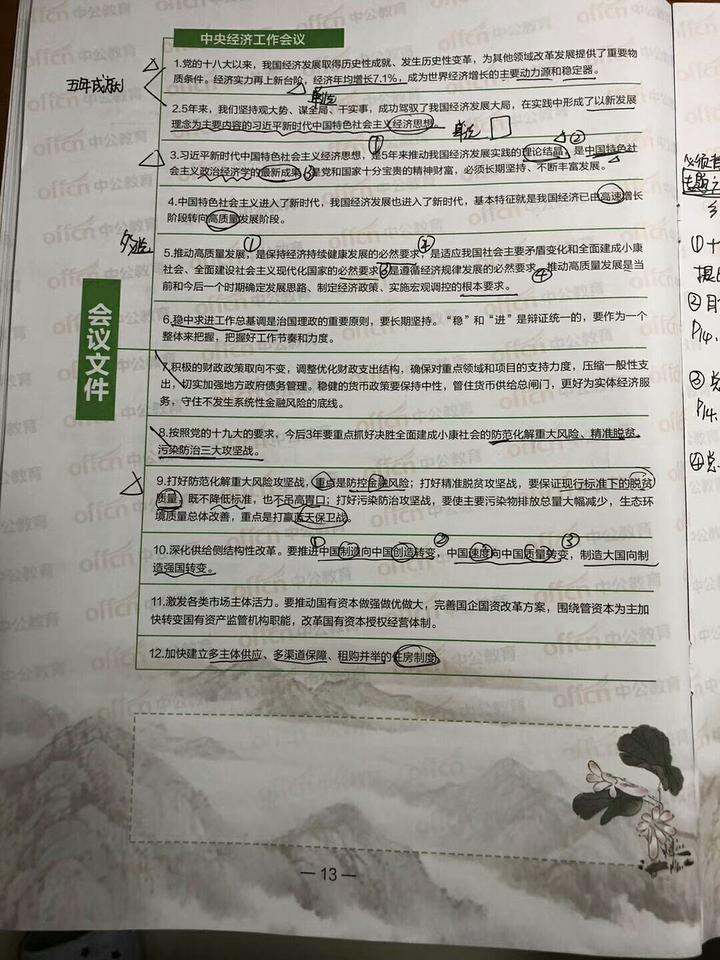 offcn中公教育
中央经济工作会议
会议文件
五年成就
1.党的十八大以来，我国经济发展取得历史性成就、发生历史性变革，为其他领域改革发展提供了重要物
质条件。经济实力再上新台阶，经济年均增长7.1%，成为世界经济增长的主要动力源和稳定器。
单选
2.5年来，我们坚持观大势、谋全局、干实事，成功驾驭了我国经济发展大局，在实践中形成了以新发展
理念为主要内容的习近平新时代中国特色社会主义经济思想。
单选
① ②
3.习近平新时代中国特色社会主义经济思想，是5年来推动我国经济发展实践的理论结晶，是中国特色社
会主义政治经济学的最新成果，③是党和国家十分宝贵的精神财富，必须长期坚持、不断丰富发展。
4.中国特色社会主义进入了新时代，我国经济发展也进入了新时代，基本特征就是我国经济已由高速增长
阶段转向高质量发展阶段。
多选
① ②
5.推动高质量发展，是保持经济持续健康发展的必然要求，是适应我国社会主要矛盾变化和全面建成小康
社会、全面建设社会主义现代化国家的必然要求，③是遵循经济规律发展的必然要求。④推动高质量发展是当
前和今后一个时期确定发展思路、制定经济政策、实施宏观调控的根本要求。
6.稳中求进工作总基调是治国理政的重要原则，要长期坚持。“稳”和“进”是辩证统一的，要作为一个
整体来把握，把握好工作节奏和力度。
7.积极的财政政策取向不变，调整优化财政支出结构，确保对重点领域和项目的支持力度，压缩一般性支
出，切实加强地方政府债务管理。稳健的货币政策要保持中性，管住货币供给总闸门，更好为实体经济服
务，守住不发生系统性金融风险的底线。
8.按照党的十九大的要求，今后3年要重点抓好决胜全面建成小康社会的防范化解重大风险、精准脱贫、
污染防治三大攻坚战。
9.打好防范化解重大风险攻坚战，重点是防控金融风险；打好精准脱贫攻坚战，要保证现行标准下的脱贫
质量，既不降低标准，也不吊高胃口；打好污染防治攻坚战，要使主要污染物排放总量大幅减少，生态环
境质量总体改善，重点是打赢蓝天保卫战。
① ② ③
10.深化供给侧结构性改革。要推进中国制造向中国创造转变，中国速度向中国质量转变，制造大国向制
造强国转变。
11.激发各类市场主体活力。要推动国有资本做强做优做大，完善国企国资改革方案，围绕管资本为主加
快转变国有资产监管机构职能，改革国有资本授权经营体制。
12.加快建立多主体供应、多渠道保障、租购并举的住房制度。
— 13 —
① 十
② 目
P14.
③ 总
P14.
④ 总